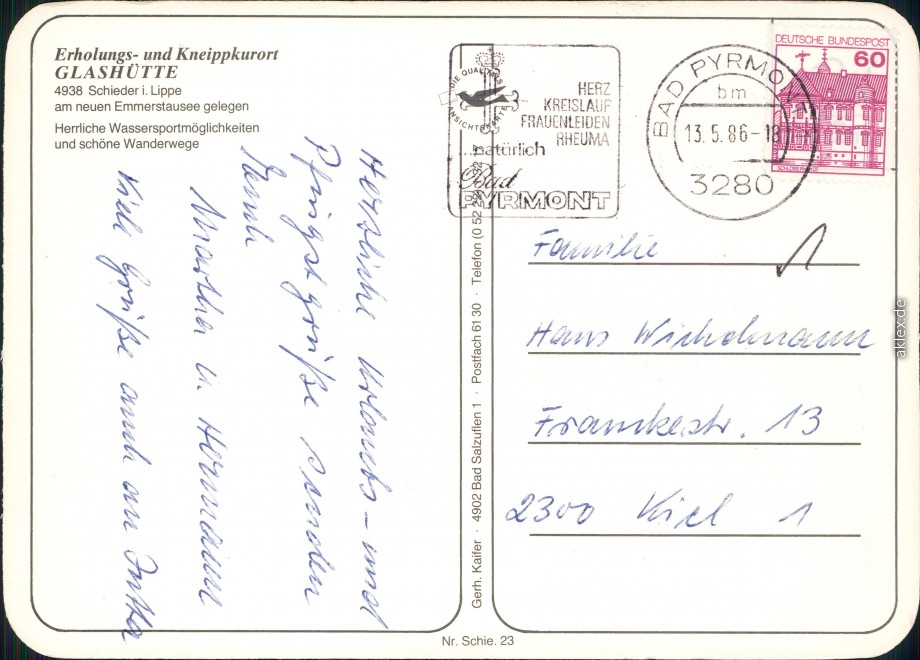 Erholungs- und Kneippkurort
GLASHÜTTE
4938 Schieder i. Lippe
am neuen Emmerstausee gelegen
Herrliche Wassersportmöglichkeiten
und schöne Wanderwege
Herzliche Urlaubs- und
Pfingstgrüße senden
Martha u. Hermann
Viele Grüße auch an
DIE QUALITÄTS
ANSICHTSKARTE
HERZ
KREISLAUF
FRAUENLEIDEN
RHEUMA
...natürlich
Bad
PYRMONT
BAD PYRMONT
bm
13.5.86-18
3280
DEUTSCHE BUNDESPOST
60
Gerh. Kaifer · 4902 Bad Salzuflen 1 · Postfach 6130 · Telefon (0 52
Familie
Hans Wichelmann
Franckestr. 13
2300 Kiel 1
Nr. Schie. 23
aklex.de